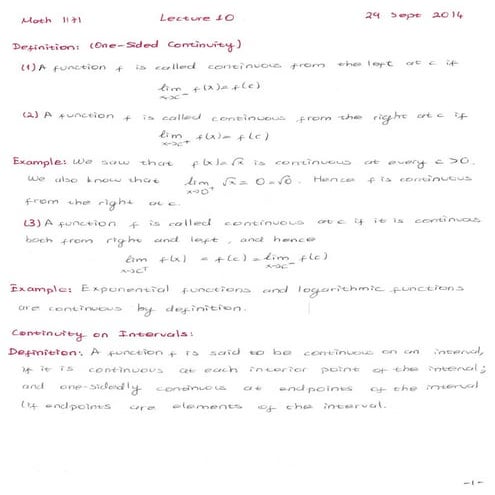 Math 1171 Lecture 10 29 Sept 2014
Definition: (One-Sided Continuity)
(1) A function f is called continuous from the left at c if
lim x→c⁻ f(x) = f(c)
(2) A function f is called continuous from the right at c if
lim x→c⁺ f(x) = f(c)
Example: We saw that f(x)=√x is continuous at every c>0.
We also know that lim x→0⁺ √x = 0 = √0. Hence f is continuous
from the right at c.
(3) A function f is called continuous at c if it is continuous
both from right and left, and hence
lim x→c⁺ f(x) = f(c) = lim x→c⁻ f(c)
Example: Exponential functions and logarithmic functions
are continuous by definition.
Continuity on Intervals:
Definition: A function f is said to be continuous on an interval,
if it is continuous at each interior point of the interval;
and one-sidedly continuous at endpoints of the interval
(if endpoints are elements of the interval.
-1-